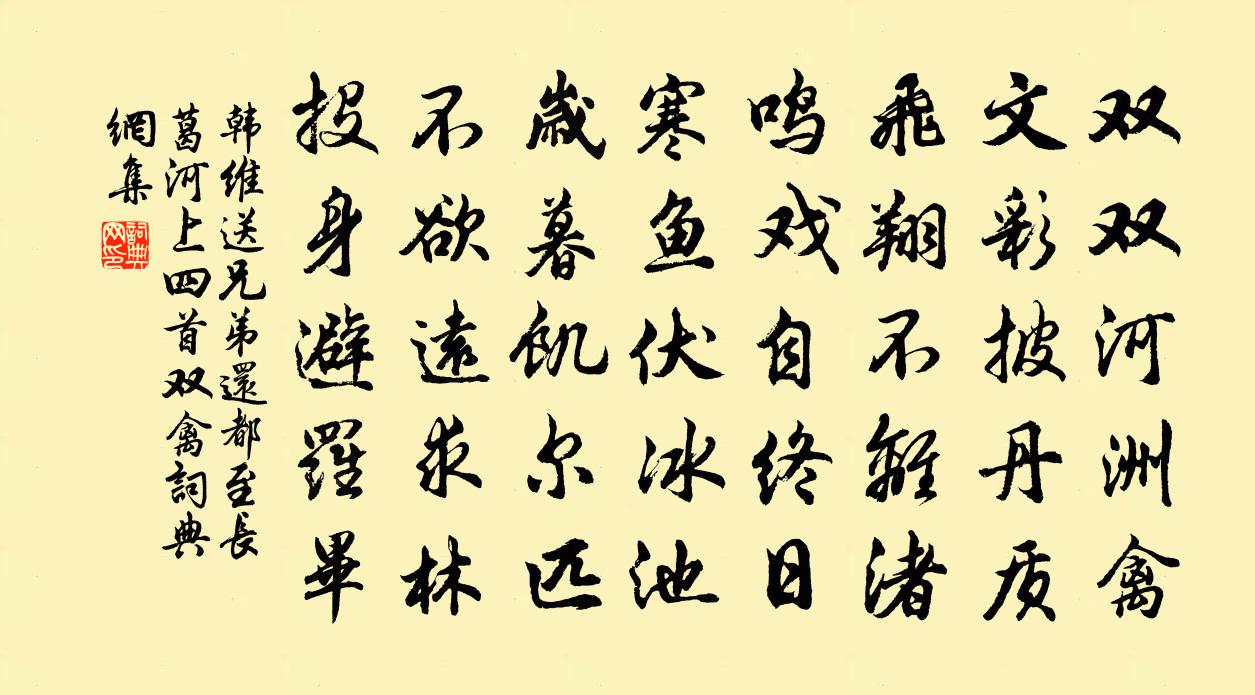 双双河洲禽
文彩披丹质
飛翔不離渚
鸣戏自终日
寒鱼伏冰池
歲暮飢尔匹
不欲遠求林
投身避羅畢
韩维送兄弟還都至長
葛河上四首双禽詞典
網集
詞典
网印